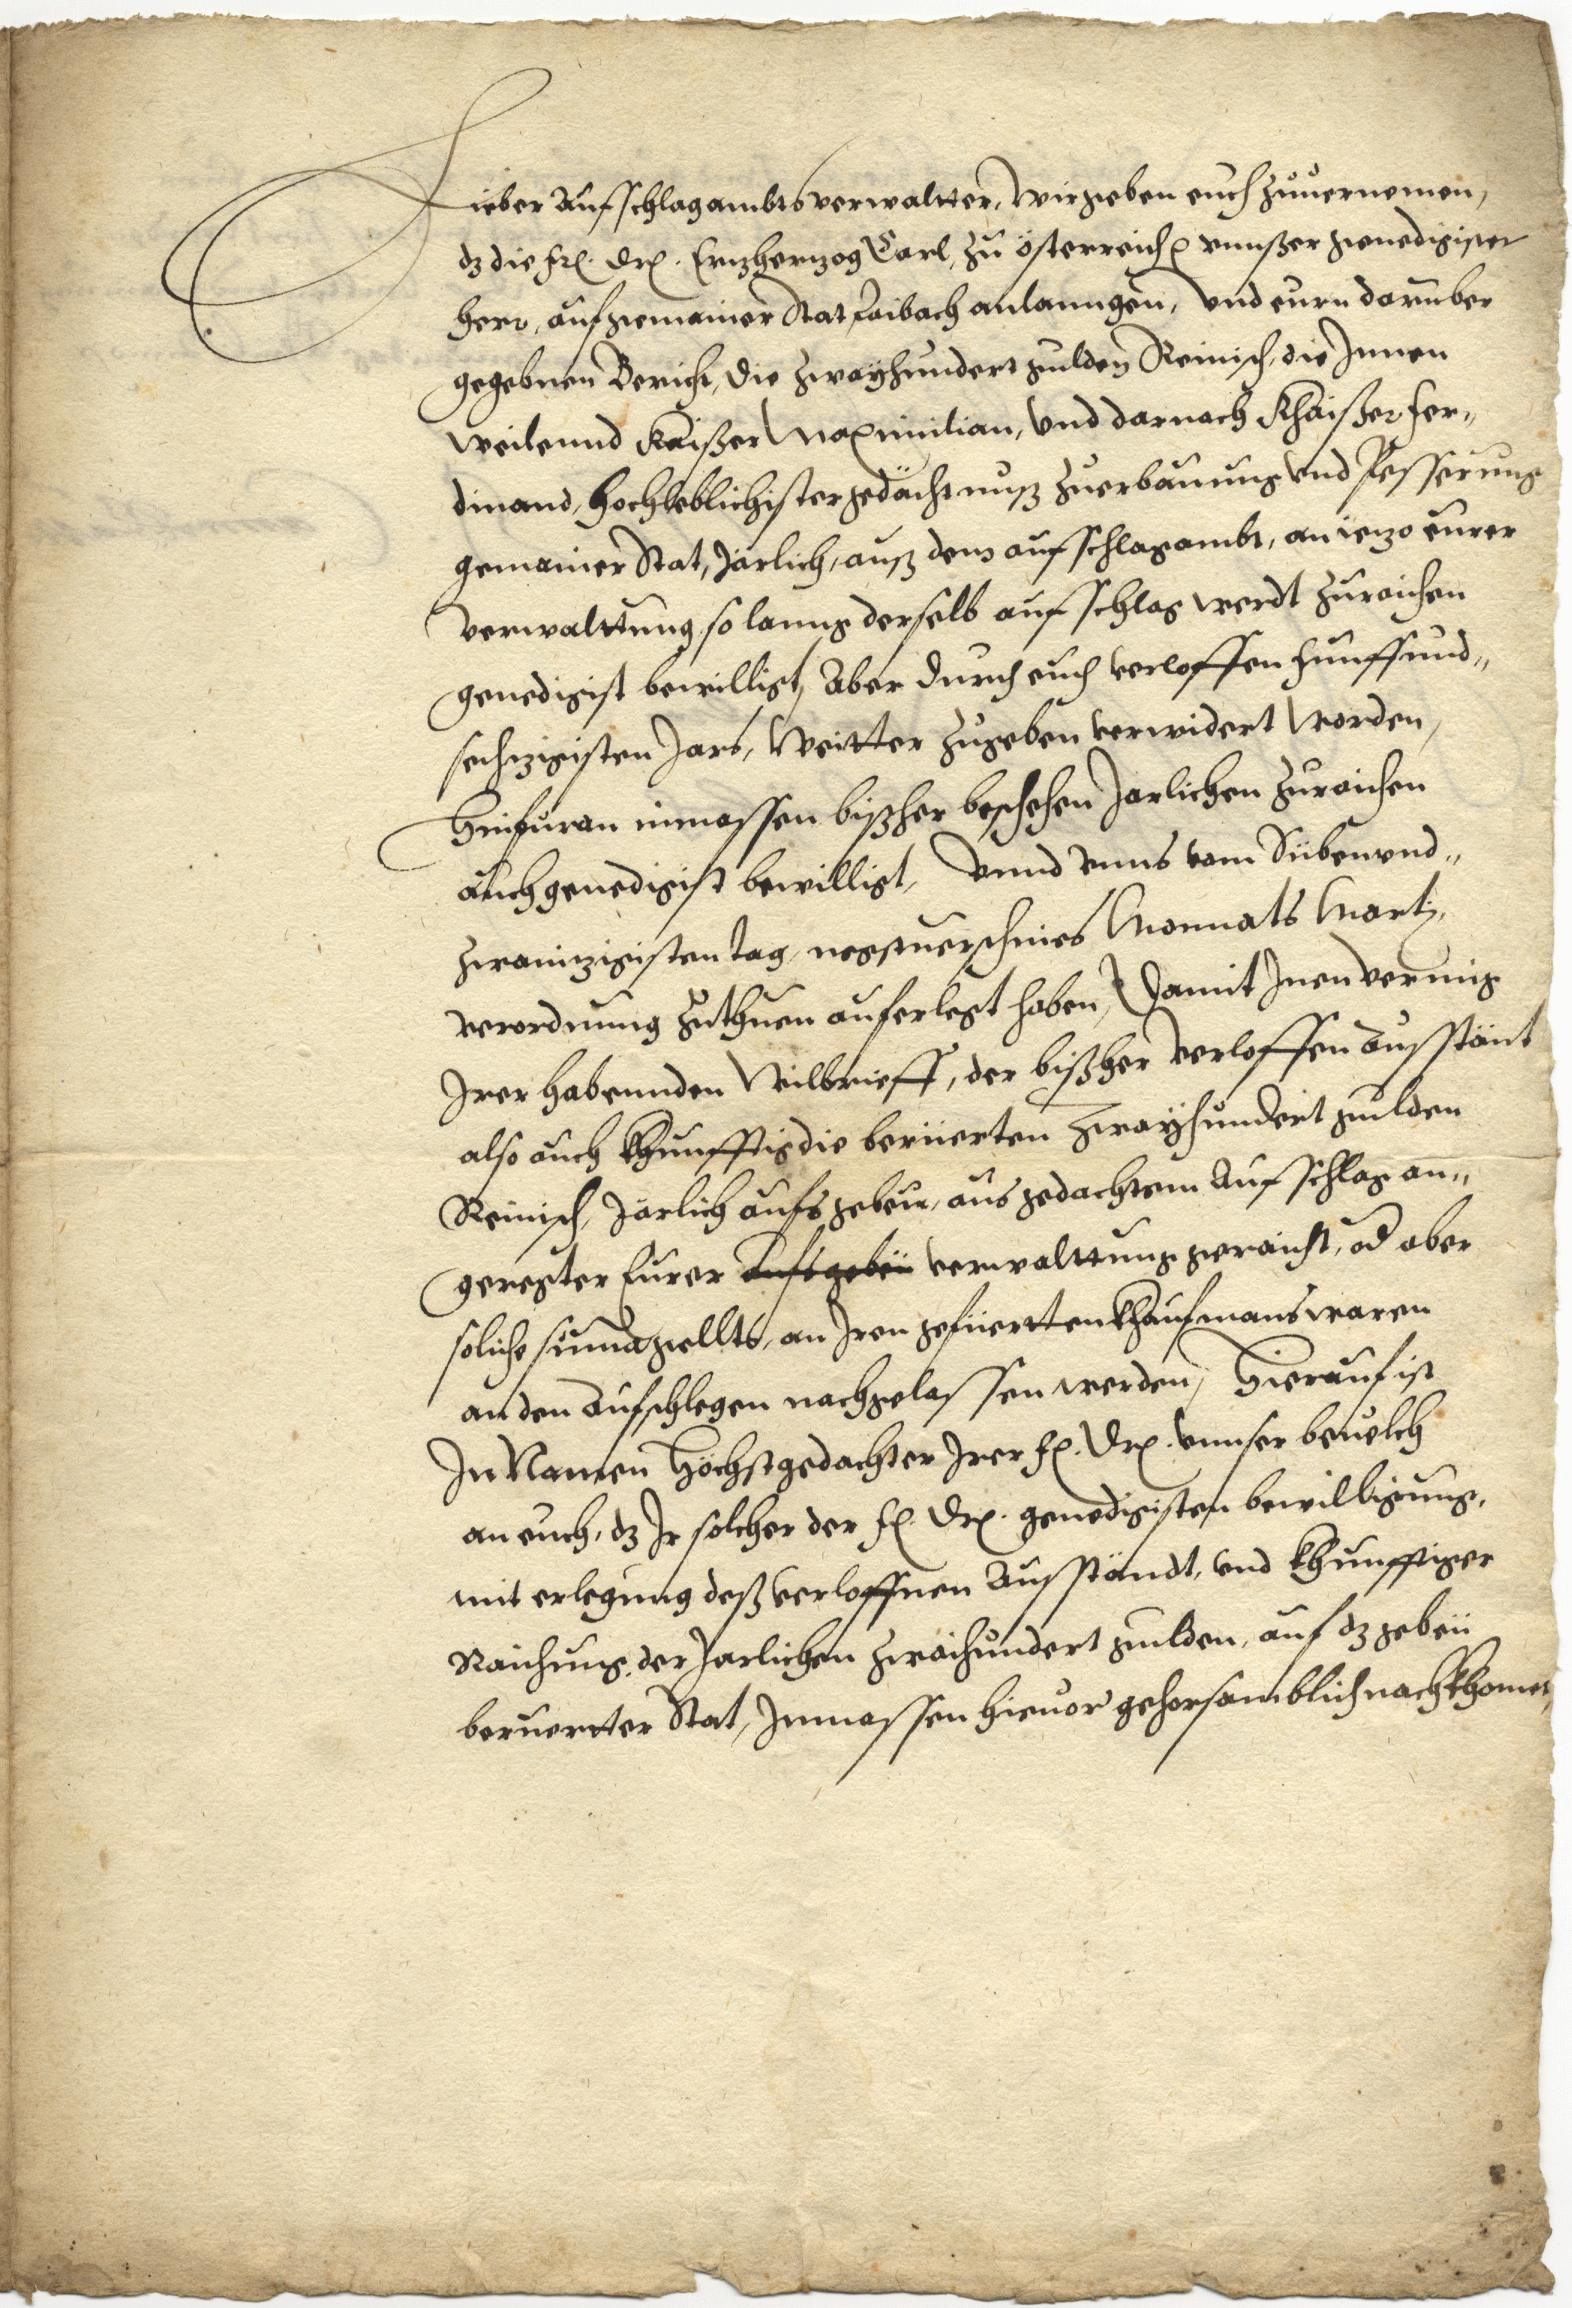 Lieber Aufschlagambtsverwaltter, Wir geben euch zuuernemen,
dz die frl. Drl. Ertzhertzog Carl, zu Österreich &c. vnnßer genedigister
herr, auf gemainer Stat Laibach anlanngen, vnd eurn darüber
gegebnen Bericht, die zwayhundert gulden Reinisch, die Jnnen
weilennd Kaißer Maximilian, vnd darnach Khaißer Fer„
dinand, hochloblichister gedächtnuß zuerbauung vnd Pesserung
gemainer Stat, Järlich, auß dem aufschlagambt, an ietzo eurer
verwalttung, so lanng derselb aufschlag werdt zuraichen
genedigist bewilligt, Aber durch euch verloffen funffund„
sechzigisten Jars, Weitter zugeben verwidert worden,
Hinfuran inmassen bißher beschehen Jarlichen zuraichen
auch genedigist bewilligt, vnnd vnns vom Sübenvnd„
zwainzigisten tag, negstuerschines Monnats Marty,
verordnung zuthuen auferlegt haben, Damit Jnen vermüg
Jrer habennden Wilbrieff, der bißher verloffen Ausstänt
also auch khunfftig die beruerten zwayhundert gulden
Reinisch, Järlich aufs gebeu, aus gedachtem Aufschlag an„
geregter Eurer aufs gebeü verwalttung geraicht, od aber
soliche suma gellts, an Jren gefüertten khaufmanswaren
an den Aufschlegen nachgelassen werden, Hierauf ist
In Namen Höchstgedachter Jrer fl. Drl. vnnser beuelch
an euch, dz Jr solcher der fl. Drl. genedigisten bewilligung,
mit erlegung deß verloffnen Ausständt, vnd khunfftiger
Raichung, der Jarlichen zwaihundert gulden, auf dz gebeü
beruertter Stat, Jnmassen hieuor gehorsamblich nachkhomet,